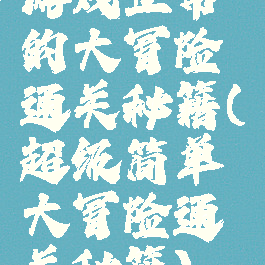 游戏正常
的大冒险
通关秘籍(
超级简单
大冒险通
关秘籍)